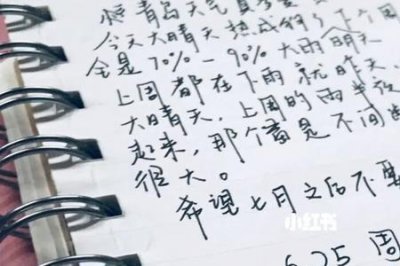 青岛天气真
今天大晴天 热成狗了 下个周
全是70%-90%大雨 明天
上周都在下雨 就昨天、
大晴天,上周的雨
起来,那个 是不间
很大。
希望七月之后不要
小红书
6.25 周